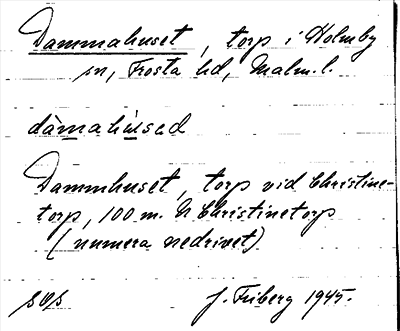 Dammahuset, torp i Holmby
sn, Frosta hd, Malm.l.
dàmahúsed
Dammhuset, torp vid Christine-
torp, 100 m. N Christinetorp
(numera nedrivet)
J. Friberg 1945.